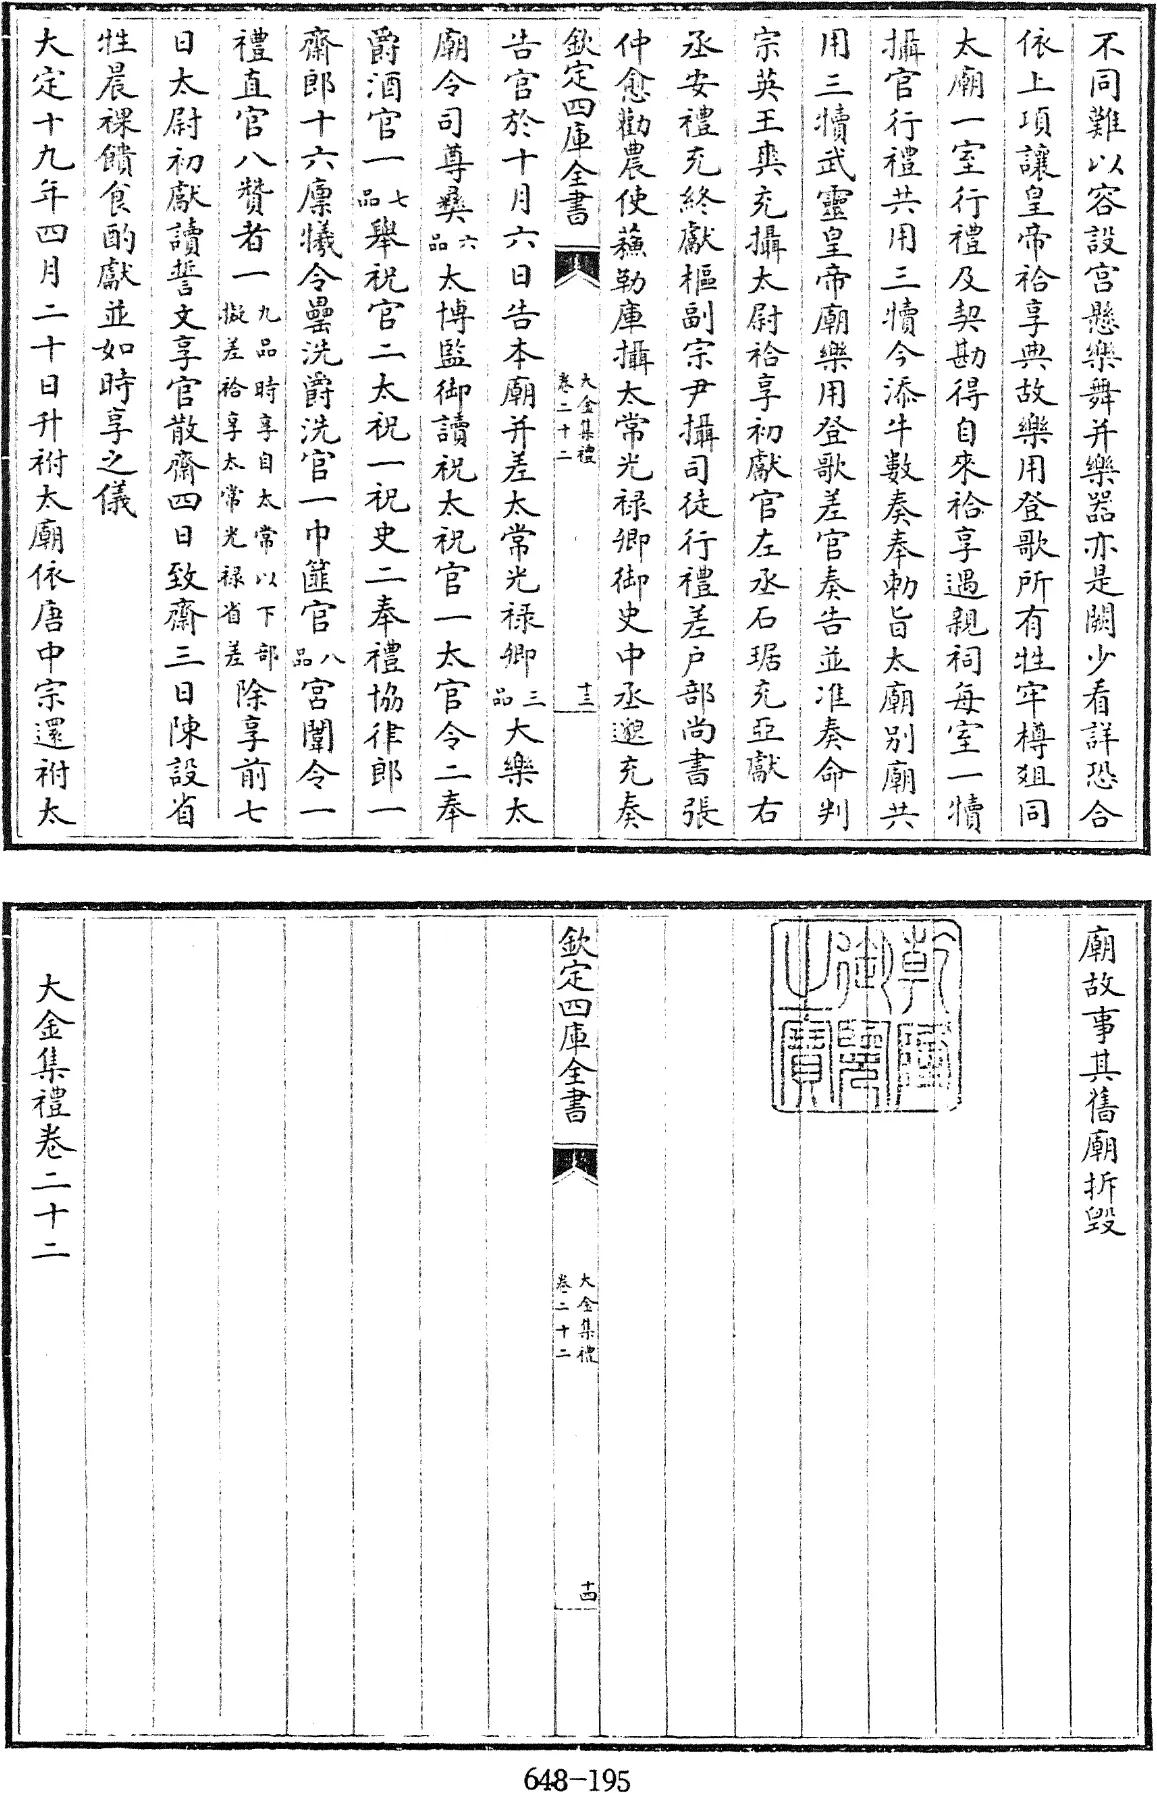 不同難以容設宫懸樂舞并樂器亦是闕少看詳恐合
依上項讓皇帝祫享典故樂用登歌所有牲牢樽俎同
太廟一室行禮及契勘得自來祫享遇親祠每室一犢
攝官行禮共用三犢今添牛數奏奉勅旨太廟别廟共
用三犢武靈皇帝廟樂用登歌差官奏告並准奏命判
宗英王爽充攝太尉祫享初獻官左丞石琚充亞獻右
丞安禮充終獻樞副宗尹攝司徒行禮差户部尚書張
仲愈勸農使蘓勒庫攝太常光禄卿御史中丞邈充奏
欽定四庫全書
大金集禮
卷二十二
十三
告官於十月六日告本廟并差太常光禄卿三品大樂太
廟令司尊彞六品太博監御讀祝太祝官一太官令二奉
爵酒官一七品舉祝官二太祝一祝史二奉禮協律郎一
齋郎十六廪犧令罍洗爵洗官一巾篚官八品宫闈令一
禮直官八贊者一九品時享自太常以下部擬差祫享太常光禄省差除享前七
日太尉初獻讀誓文享官散齋四日致齋三日陳設省
牲晨祼饋食酌獻並如時享之儀
大定十九年四月二十日升祔太廟依唐中宗還祔太
廟故事其舊廟拆毁
乾隆御覽之寶
欽定四庫全書
大金集禮
卷二十二
十四
大金集禮卷二十二
648-195